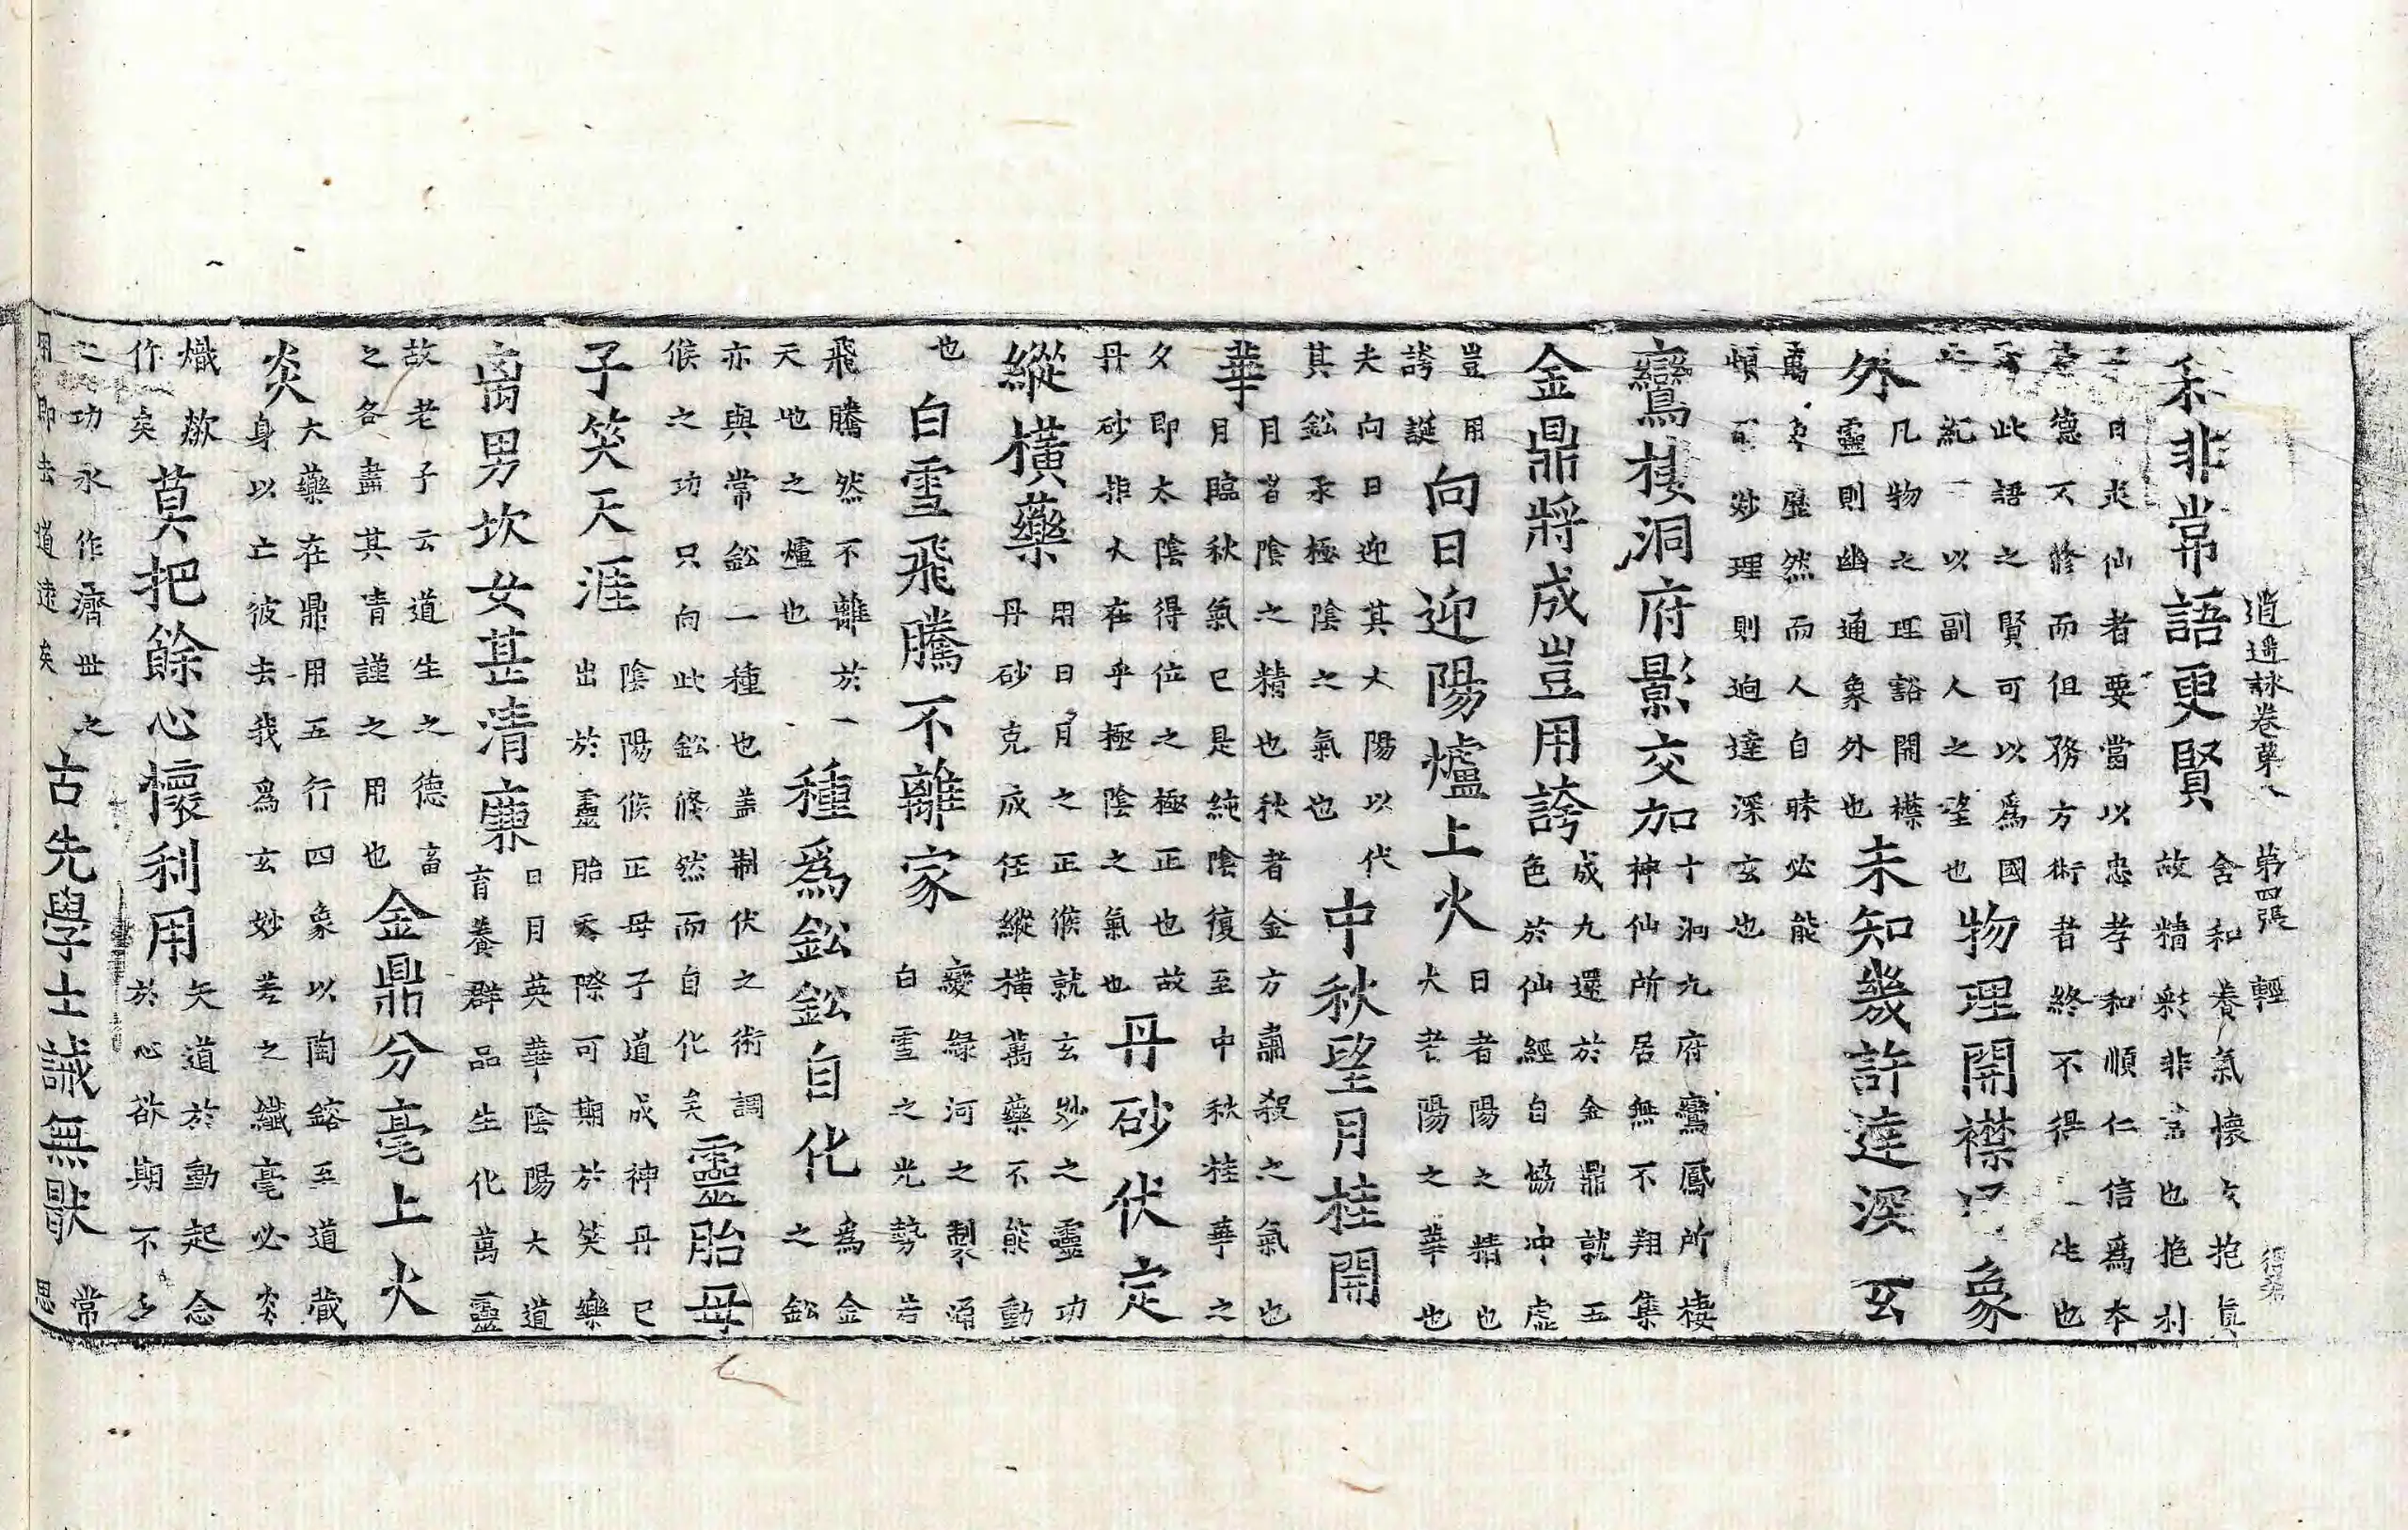 逍遥詠卷第八 第四張 輕
非常語更賢 舍和養氣懷抱眞
故精彩非言也抱利
曰夫仙者要當以忠孝和順仁信爲本
德不修而但務方術者終不得也
此語之賢可以爲國
紀一以副人之望也 物理開襟象
外 凡物之理豁開襟
靈則幽通象外也 未知幾許達深玄
萬歷然而人自昧必能
妙理則逈達深玄也
鸞棲洞府影交加 十洞九府鸞鳳所棲
神仙所居無不翔集
金鼎將成豈用誇 成九還於金鼎就五
色於仙經自恊冲虛
豈用
誇誕 向日迎陽爐上火 日者陽之精也
大老陽之華也
夫向日迎其太陽以伐
其鈆汞極陰之氣也 中秋望月桂開
華 月者陰之精也秋者金方肅殺之氣也
月臨秋氣已是純陰復至中秋桂華之
夕即太陰得位之極正也故
丹砂非大在乎極陰之氣也 丹砂伏定
縱橫藥 用日月之正候就玄妙之靈功
丹砂克成任縱橫萬藥不能動
也 白雪飛騰不離家 變綠河之製涌
白雪之光勢若
飛騰然不離於一
天地之爐也 種爲鈆鈆自化 爲金
之鈆
亦與常鈆一種也盖制伏之術調
候之功只向此鈆修然而自化矣 靈胎母
子笑天涯 陰陽候正母子道成神丹已
出於靈胎際可期於笑樂
离男坎女甚清廉 日月英華陰陽大道
育養群品生化萬靈
故老子云道生之德畜
之各盡其謹之用也 金鼎分毫上火
炎 大藥在鼎用五行四象以陶鎔至道藏
身以亡彼去我爲玄妙差之纖毫必炎
熾歘
作矣 莫把餘心懷利用 矢道於動起念
於心欲期不
之功永作濟世之
用即去道遠矣 古先學士誡無猒 常
思